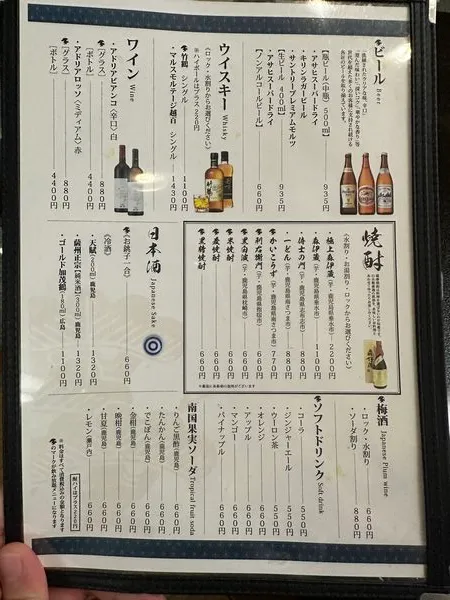 ビール Beer
【瓶ビール(中瓶)500ml】
・アサヒスーパードライ
・キリンラガービール
・サントリープレミアムモルツ 935円
【生ビール 400ml】
・アサヒスーパードライ 935円
【ノンアルコールビール】 660円
ウイスキー Whisky
(ロック・水割りからお選びください)
※ハイボールはプラス220円
・竹鶴 シングル 1100円
・マルスモルテージ越百 シングル 1430円
ワイン Wine
・アドリアビアンコ〈辛口〉白
【グラス】 880円
【ボトル】 4400円
・アドリアロッソ〈ミディアム〉赤
【グラス】 880円
【ボトル】 4400円
焼酎
(水割り・お湯割り・ロックからお選びください)
・極上森伊蔵(芋・鹿児島県垂水市) 2200円
・森伊蔵(芋・鹿児島県垂水市) 1100円
・侍士の門(芋・鹿児島県志布志市) 880円
・一どん(芋・鹿児島県南さつま市) 880円
・かいこうず(芋・鹿児島県南さつま市) 770円
・利右衛門(芋・鹿児島県指宿市) 660円
・黒白波(芋・鹿児島県枕崎市) 660円
・米焼酎 660円
・麦焼酎 660円
・黒糖焼酎 660円
日本酒 Japanese Sake
(お銚子一合) 660円
(冷酒)
・天賦(300ml)鹿児島 1320円
・薩州正宗【純米酒】(300ml)鹿児島 1320円
・ゴールド加茂鶴(180ml)広島 1100円
梅酒 Japanese Plum wine
・ロック・水割り 660円
・ソーダ割り 880円
ソフトドリンク Soft drink
・コーラ 550円
・ジンジャーエール 550円
・ウーロン茶 550円
・オレンジ 660円
・アップル 660円
・マンゴー 660円
・パイナップル 660円
南国果実ソーダ Tropical fruit soda
・りんご黒酢(鹿児島) 660円
・たんかん(鹿児島) 660円
・でこぽん(鹿児島) 660円
・金柑(鹿児島) 660円
・晩柑(鹿児島) 660円
・甘夏(鹿児島) 660円
・レモン(瀬戸内) 660円
酎ハイはプラス220円
※料金はすべて消費税込みの金額となります
のマークが飲み放題メニューになります